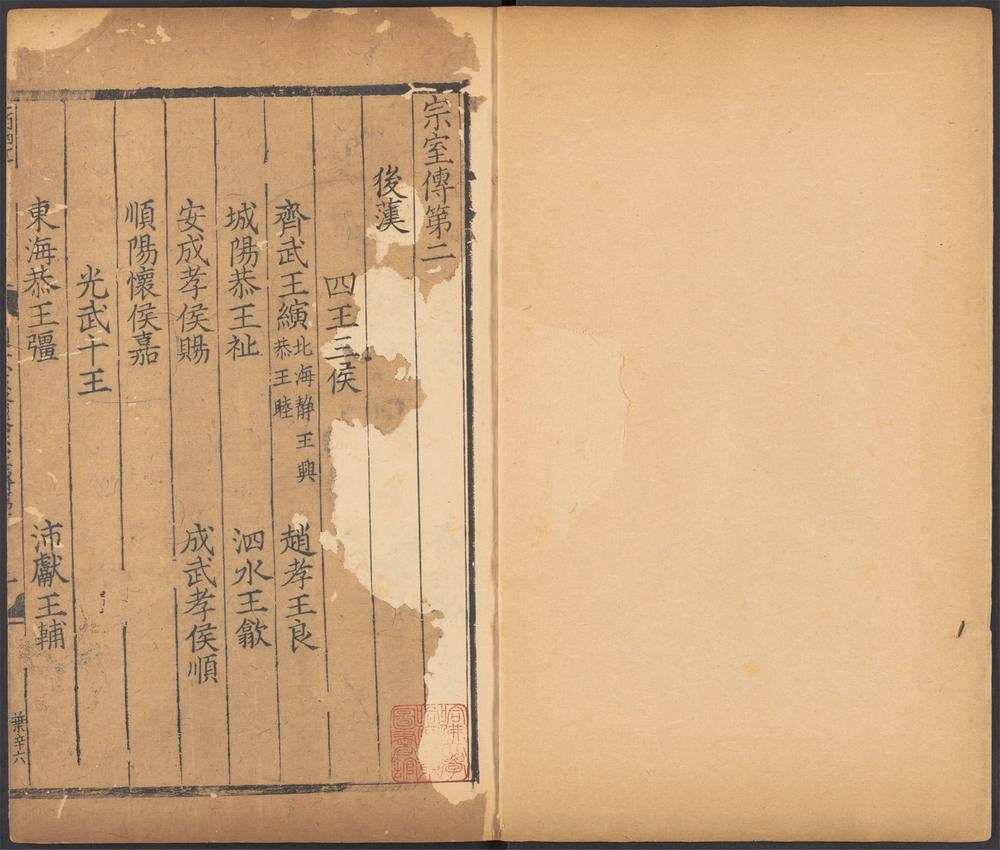 宗室傳第二
後漢
四王三侯
齊武王縯 北海静王興 恭王睦 趙孝王良
城陽恭王祉 泗水王歙
安成孝侯賜 成武孝侯順
順陽懷侯嘉
光武十王
東海恭王彊 沛獻王輔
葉辛六